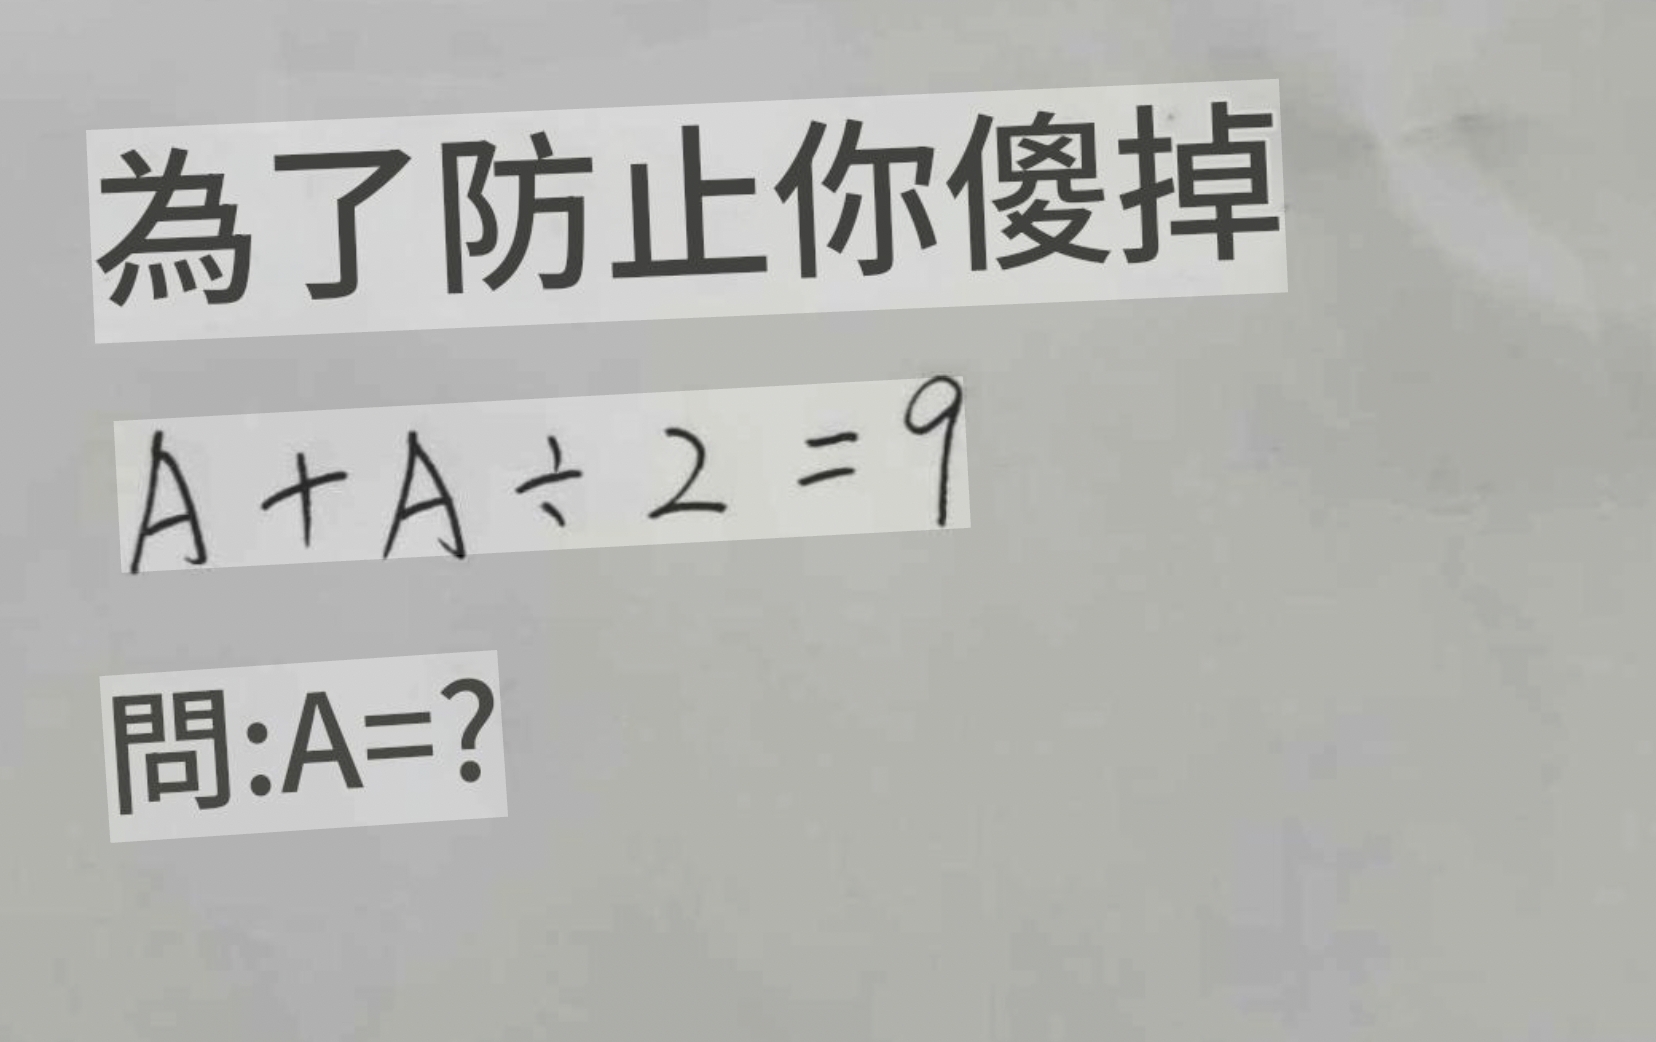 為了防止你傻掉
A+A÷2=9
問:A=?